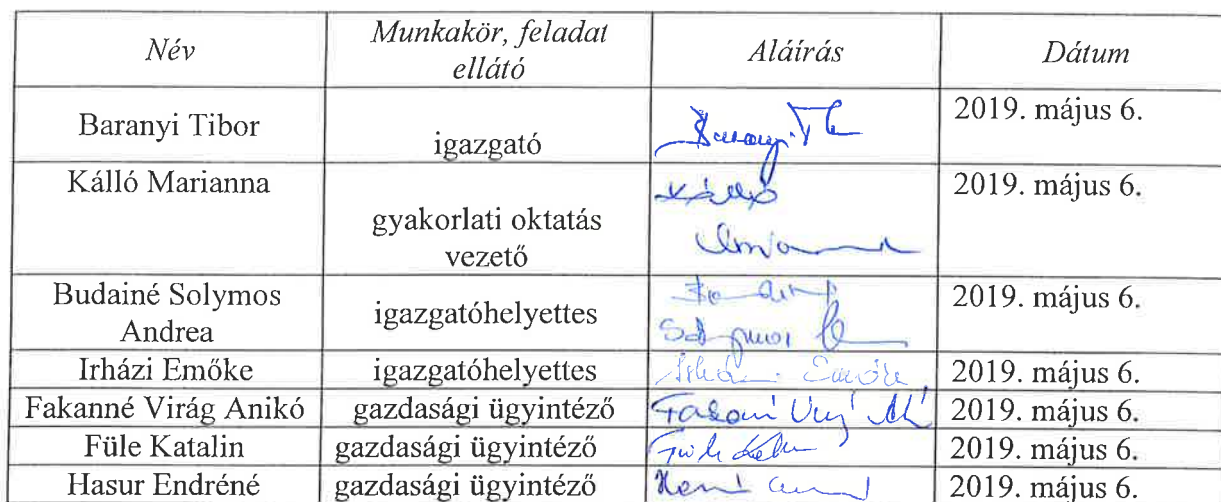 Név Munkakör, feladat ellátó Aláírás Dátum
Baranyi Tibor igazgató 2019. május 6.
Kálló Marianna gyakorlati oktatás vezető Kálló 2019. május 6.
Budainé Solymos Andrea igazgatóhelyettes 2019. május 6.
Irházi Emőke igazgatóhelyettes Irházi Emőke 2019. május 6.
Fakanné Virág Anikó gazdasági ügyintéző 2019. május 6.
Füle Katalin gazdasági ügyintéző 2019. május 6.
Hasur Endréné gazdasági ügyintéző 2019. május 6.